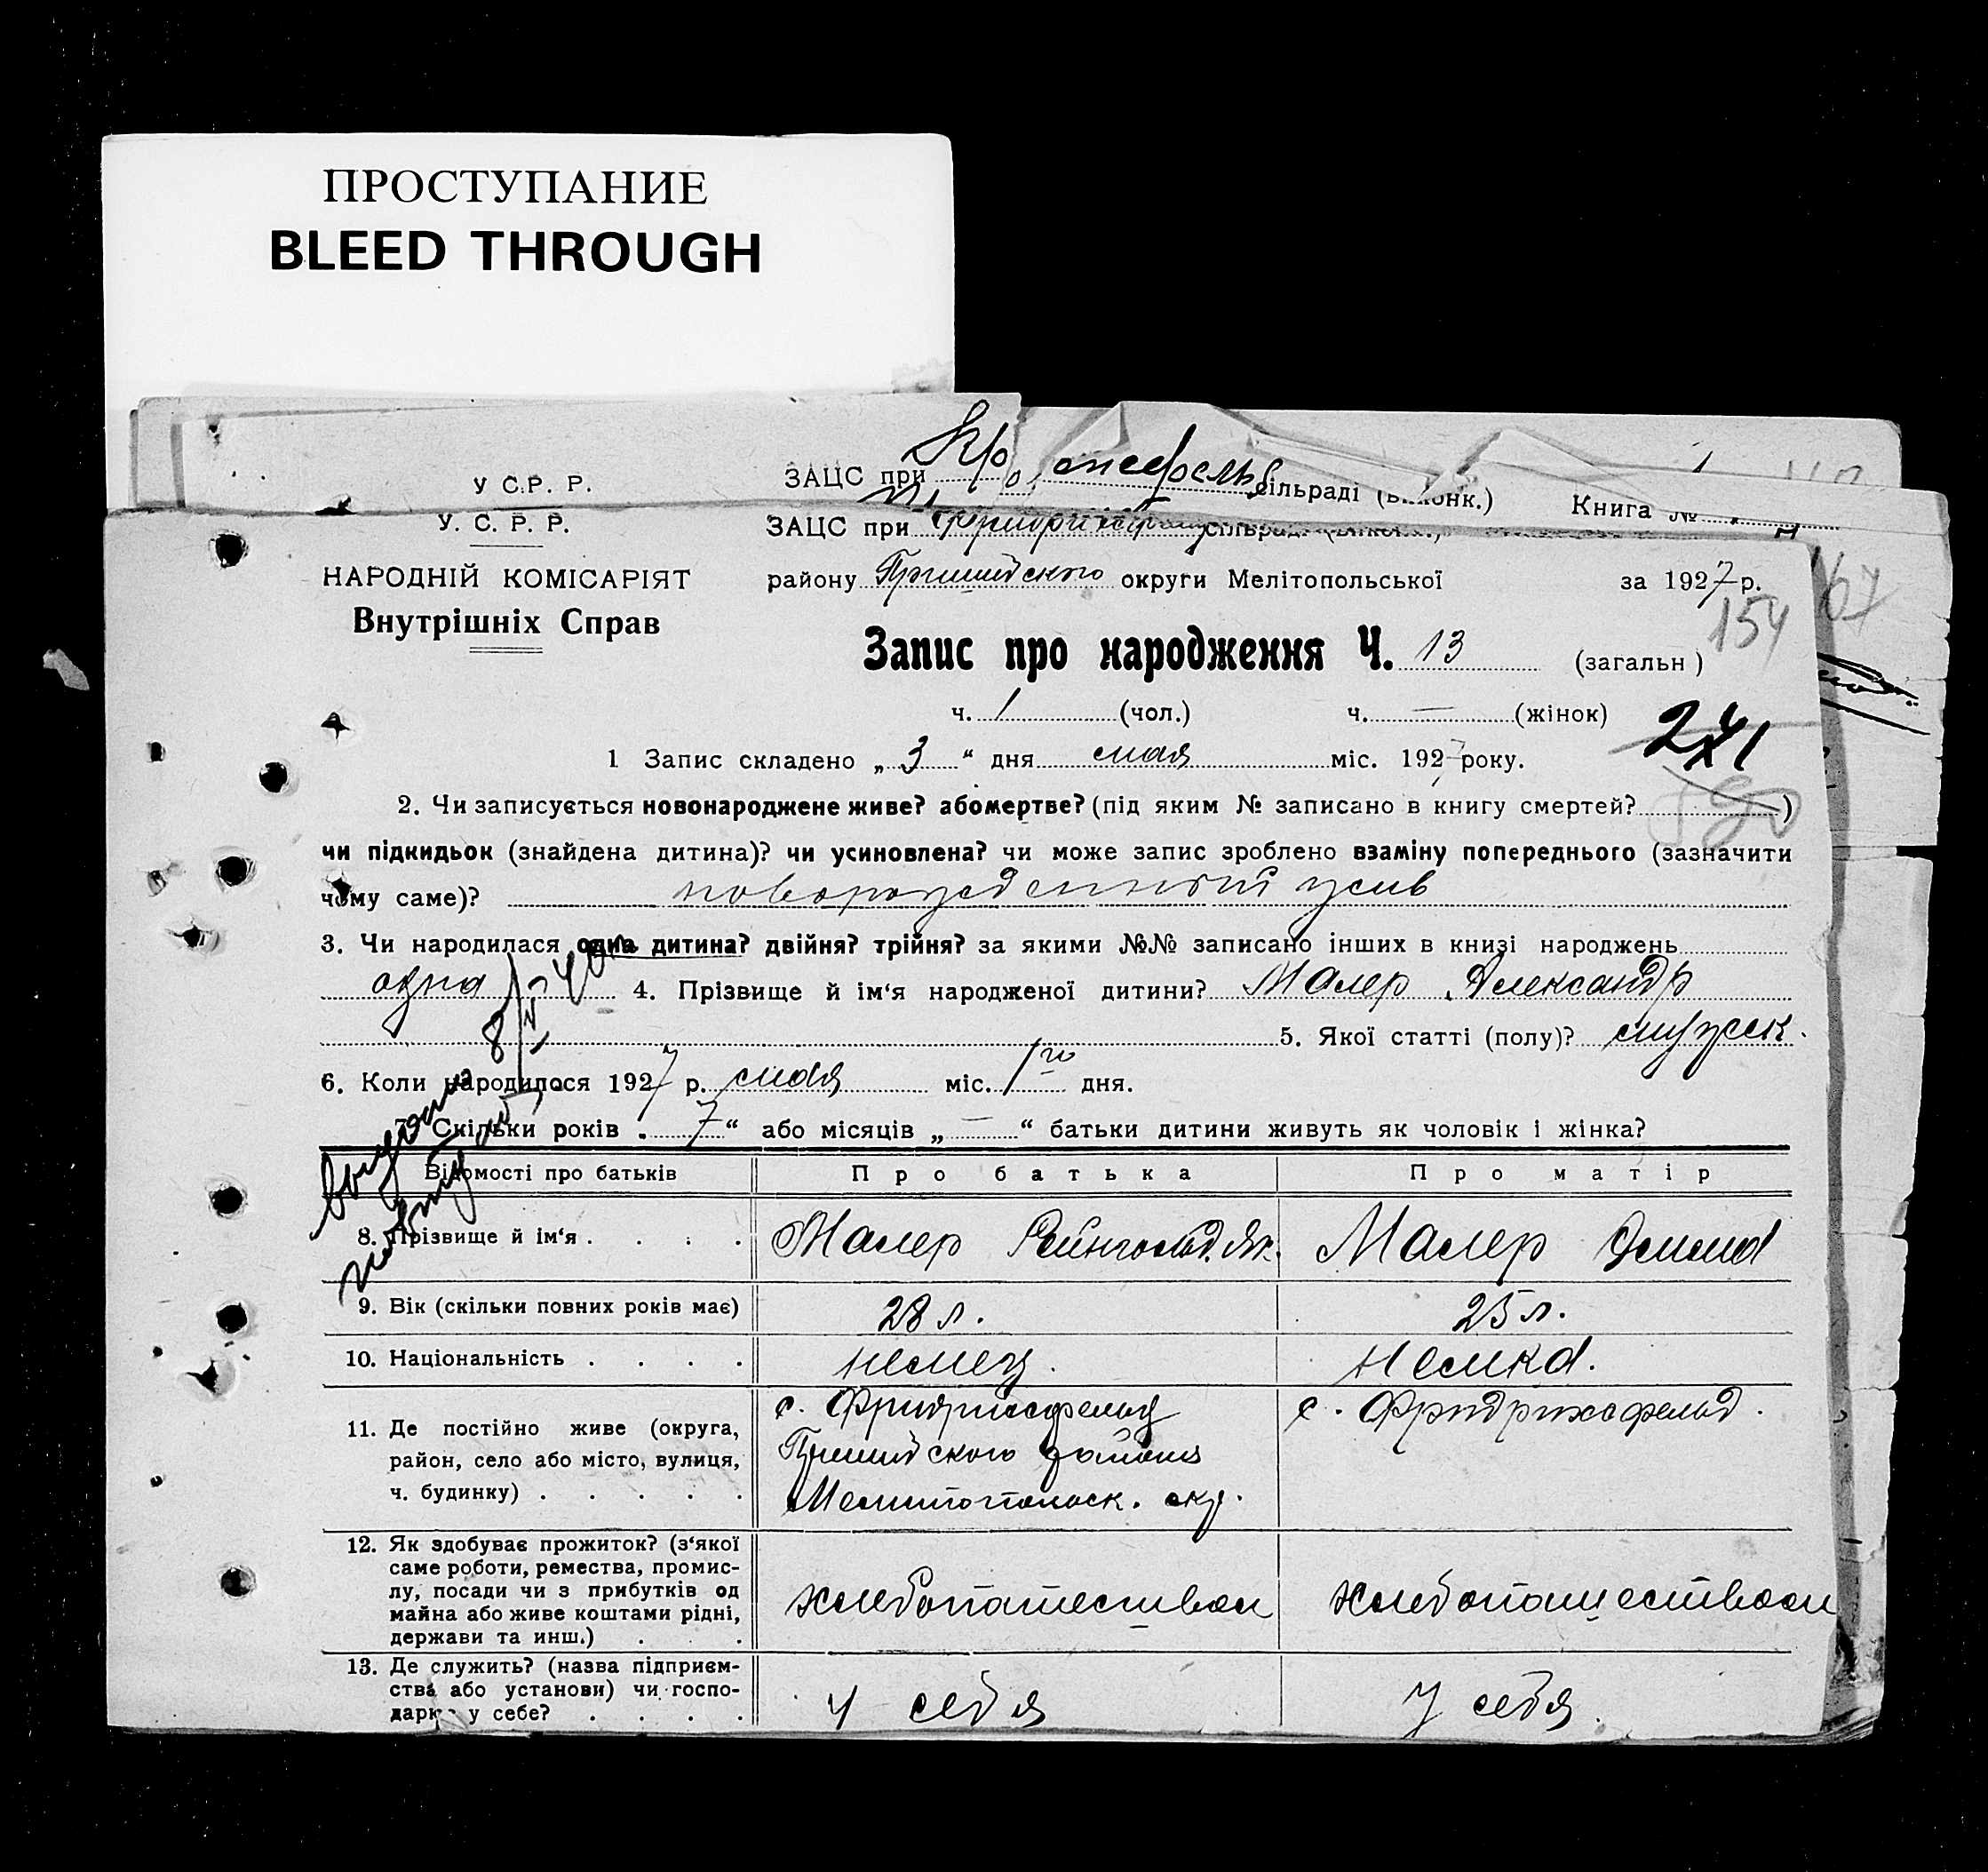 ПРОСТУПАНИЕ
BLEED THROUGH
У С.Р. Р. ЗАЦС при сільраді Книга №
У. С. Р. Р. ЗАЦС при
НАРОДНІЙ КОМІСАРІЯТ району Пришибского округи Мелітопольської за 1927 р.
67
154
Внутрішніх Справ
Запис про народження Ч. 13 (загальн )
ч. 1 (чол.) ч. — (жінок)
241
1 Запис складено „ 3 “ дня мая міс. 1927 року.
2. Чи записується новонароджене живе? або мертве? (під яким № записано в книгу смертей? )
чи підкидьок (знайдена дитина)? чи усиновлена? чи може запис зроблено взаміну попереднього (зазначити
чому саме)? новорожденный жив
3. Чи народилася одна дитина? двійня? трійня? за якими №№ записано інших в книзі народжень
одна 4. Прізвище й ім‘я народженої дитини? Малер Александр
5. Якої статті (полу)? мужск.
6. Коли народилося 1927 р. мая міс. 1го дня.
7. Скільки років „ 7 “ або місяців „ — “ батьки дитини живуть як чоловік і жінка?
выдано повторно
Відомості про батьків Про батька Про матір
8. Прізвище й ім‘я . . . . Малер Рейнгольд Як. Малер
9. Вік (скільки повних років має) 28 л. 25 л.
10. Національність . . . . немец. Немка.
11. Де постійно живе (округа, с. Фридрихсфельд с. Фридрихсфельд.
район, село або місто, вулиця, Пришибского района
ч. будинку) . . . . . Мелитопольск. окр.
12. Як здобуває прожиток? (з‘якої
саме роботи, ремества, промис-
лу, посади чи з прибутків од
майна або живе коштами рідні, хлебопашеством хлебопашеством
держави та инш.) . . .
13. Де служить? (назва підприєм-
ства або установи) чи госпо-
дарює у себе? . . . . У себя У себя.